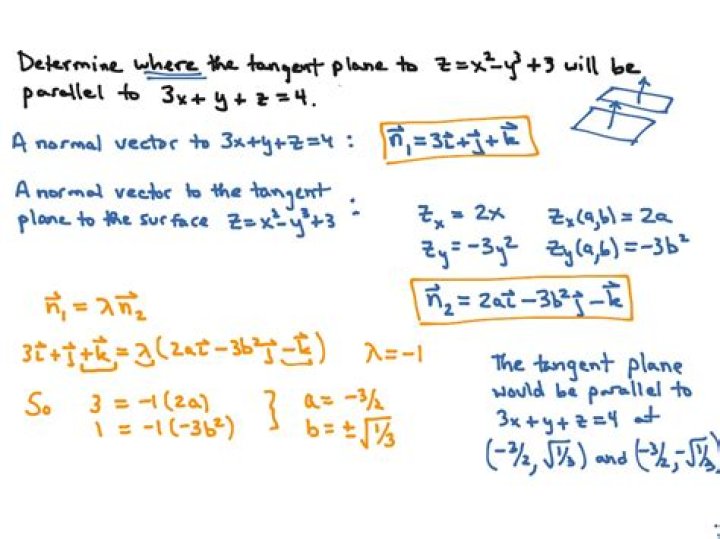 Determine where the tangent plane to z=x²-y³+3 will be
parallel to 3x+y+z=4.
A normal vector to 3x+y+z=4 : n⃗₁=3i⃗+j⃗+k⃗
A normal vector to the tangent
plane to the surface z=x²-y³+3 :
zₓ = 2x zₓ(a,b)=2a
z_y=-3y² z_y(a,b)=-3b²
n⃗₂=2ai⃗-3b²j⃗-k⃗
n⃗₁=λn⃗₂
3i⃗+j⃗+k⃗=λ(2ai⃗-3b²j⃗-k⃗) λ=-1
So 3=-1(2a) } a=-3/2
1=-1(-3b²) b=±√1/3
The tangent plane
would be parallel to
3x+y+z=4 at
(-3/2,√1/3) and (-3/2,-√1/3)